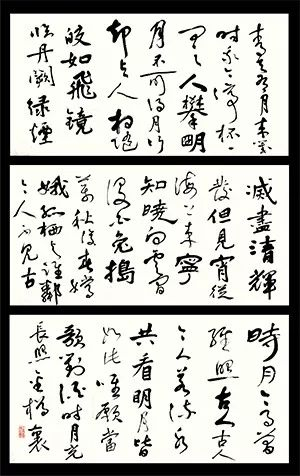 青天有月來幾
時我今停杯一
問之人攀明
月不可得月行
却與人相隨
皎如飛鏡
臨丹闕綠煙
滅盡清輝
發但見宵從
海上來寧
知曉向雲間
沒白兔搗
藥秋復春嫦
娥孤棲與誰鄰
今人不見古
時月今月曾
經照古人古人
今人若流水
共看明月皆
如此唯願當
歌對酒時月光
長照金樽裏